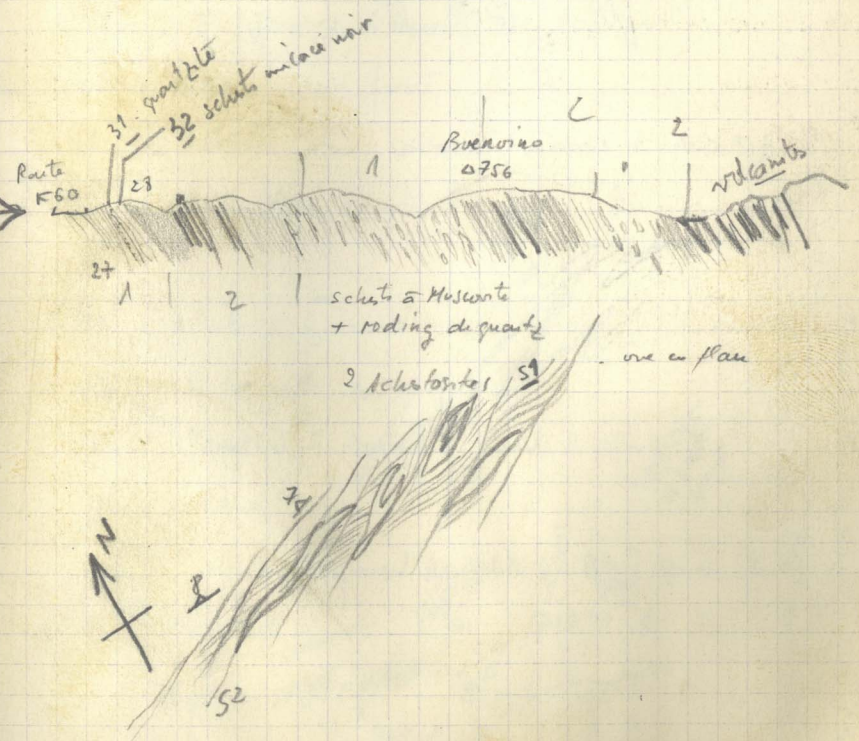 31. quartzite
32 schists micacé noir
Route
K60
28
1
Buenvino
△756
2
2
volcanites
27
1
2
schists à Muscovite
+ roding de quartz
2 schistosités
S1
. vue en plan
N
S2